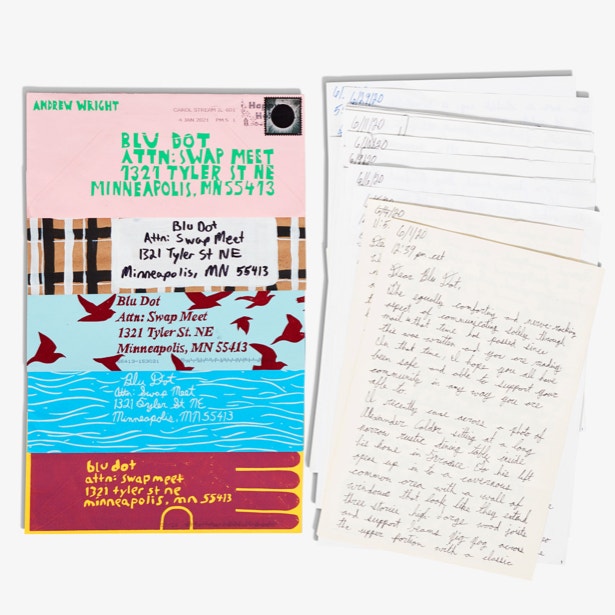 ANDREW WRIGHT
CAROL STREAM IL
4 JAN 2021 PM 5 L
BLU DOT
ATTN: SWAP MEET
1321 TYLER ST NE
MINNEAPOLIS, MN 55413
Blu Dot
Attn: Swap Meet
1321 Tyler St NE
Minneapolis, MN 55413
Blu Dot
Attn: Swap Meet
1321 Tyler St. NE
Minneapolis, MN 55413
Blu Dot
Attn: Swap Meet
1321 Tyler St NE
Minneapolis, MN 55413
blu dot
attn: swap meet
1321 tyler st ne
minneapolis, mn 55413
6/11/20
6/10/20
6/9/20
6/6/20
6/1/20
12:59 pm
Dear Blu Dot,
The equally comforting and nerve-racking
aspect of communicating solely through
mail is that time has passed since
this was written and you are reading
it. In that time, I hope you all have
been safe and able to support your
community in any way you are
able to.
I recently came across a photo of
Alexander Calder sitting at a long
narrow rustic dining table inside
his home in France. To his left
opens up in to a cavernous
common area with a wall of
windows that look like they extend
three stories high. Large wood joists
and support beams zig zag across
the upper portion with a classic